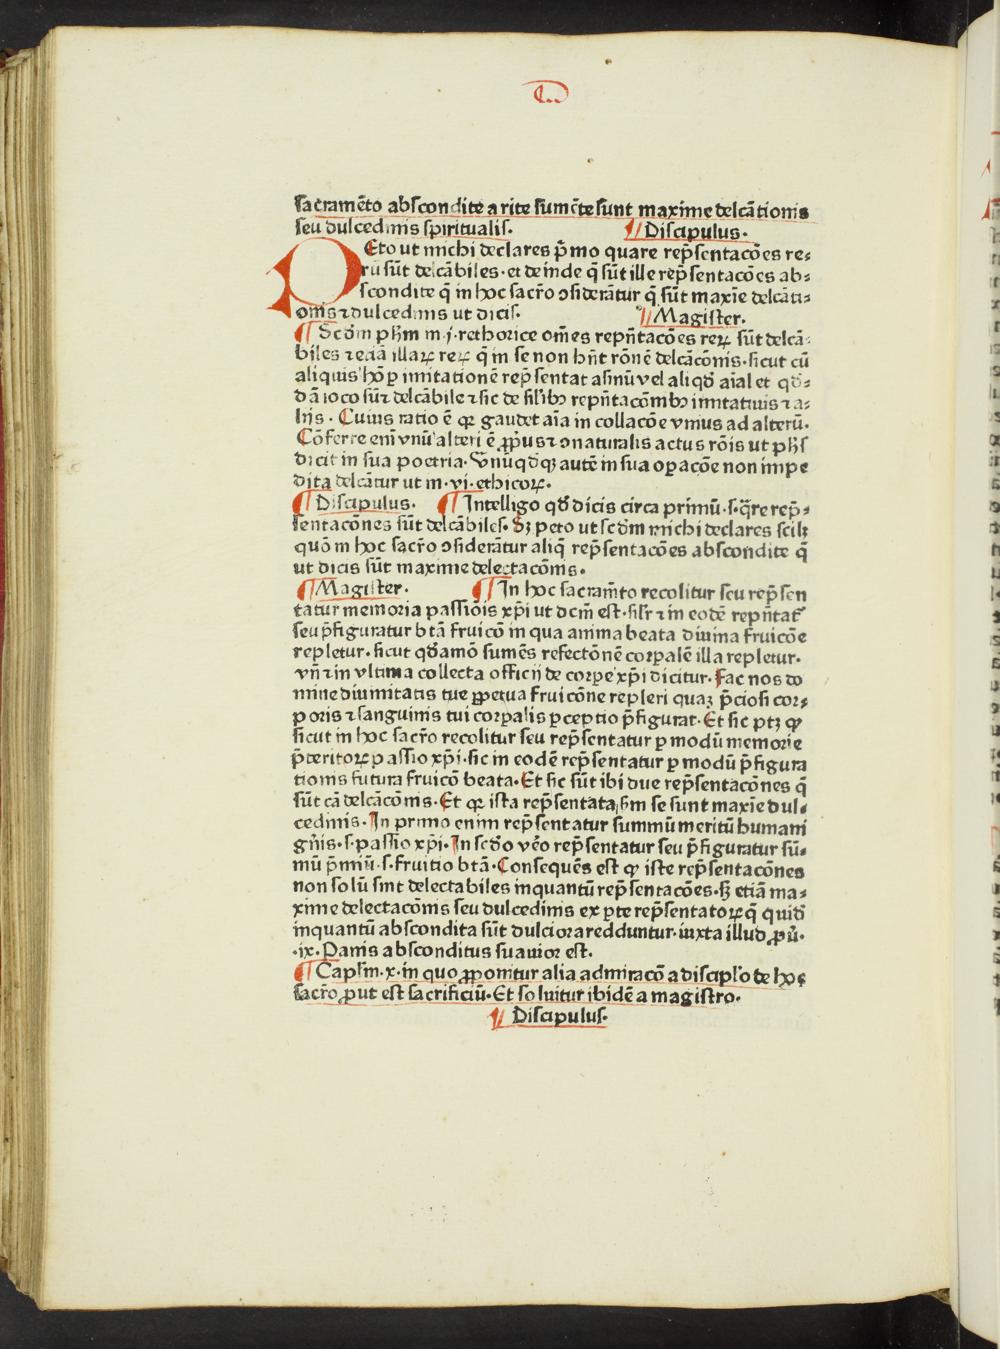 sacramēto abscondite a rite sumēte sunt maxime delcātionis
seu dulcedinis spiritualis. ¶ Discipulus.
PEto ut michi declares p̄mo quare rep̄sentacōes re⸗
rū sūt delcābiles· et deinde q̄ sūt ille rep̄sentacōes ab⸗
scondite q̄ in hoc sacr̄o ↄsiderātur q̄ sūt maxīe delcāti⸗
onis ⁊ dulcedinis ut dicis. ¶ Magister.
¶ Scd̄m ph̄m in·j·rethorice om̄es repn̄tacōes reꝝ sūt delcā⸗
biles ⁊ etiā illaꝝ reꝝ q̄ in se non hn̄t rōnē delcācōnis·sicut cū
aliquis hō ꝑ imitationē rep̄sentat asinū vel aliqd̄ aīal et qd̄⸗
dā ioco sūt delcābile ⁊ sic de sil'ibꝫ repn̄tacōnibꝫ imitatiuis ⁊ a⸗
liis · Cuius ratio ē qꝛ gaudet aīa in collacōe vnius ad alterū·
Cōferre eni᷎ vnū alteri ē ꝓpꝰus ⁊ ↄnaturalis actus rōis ut ph̄s
dicit in sua poetria· Vnūqd̄qꝫ autē in sua oꝑacōe non impe
dita delcātur ut in·vi·ethicoꝝ·
¶ Discipulus· ¶ Intelligo qd̄ dicis circa primū·s·q̄re rep̄⸗
sentacōnes sūt delcābiles· Sꝫ peto ut scd̄m michi declares scilꝫ
quō in hoc sacr̄o ↄsiderātur aliq̄ rep̄sentacōes abscondite q̄
ut dicis sūt maxime delectacōnis·
¶ Magister· ¶ In hoc sacram̄to recolitur seu rep̄sen
tatur memoria passiōis xp̄i ut dcm̄ est·sil'r ⁊ in eodē repn̄tat᷑
seu p̄figuratur btā fruicō in qua anima beata diuina fruicōe
repletur· sicut qd̄amō sumēs refectōnē corꝑalē illa repletur·
vn̄ ⁊ in vltima collecta officij de corꝑe xp̄i dicitur· Fac nos do
mine diuinitatis tue ꝑpetua fruicōne repleri quaꝫ p̄ciosi cor⸗
poris ⁊ sanguinis tui corꝑalis ꝑceptio p̄figurat· Et sic ptꝫ ꝙ
sicut in hoc sacr̄o recolitur seu rep̄sentatur ꝑ modū memorie
p̄teritoꝝ passio xp̄i·sic in eodē rep̄sentatur ꝑ modū p̄figura
tionis futura fruicō beata· Et sic sūt ibi due rep̄sentacōnes q̄
sūt cā delcācōnis· Et qꝛ ista rep̄sentata ẜm se sunt maxīe dul⸗
cedinis· In primo enim rep̄sentatur summū meritū humani
gn̄is·s·passio xp̄i· In scd̄o vēo rep̄sentatur seu p̄figuratur sū⸗
mū p̄miū·s·fruitio btā· Consequēs est ꝙ iste rep̄sentacōnes
non solū sint delectabiles inquantū rep̄sentacōes·sꝫ etiā ma⸗
xime delectacōnis seu dulcedinis ex ꝑte rep̄sentatoꝝ q̄ quid̄
inquantū abscondita sūt dulciora redduntur· iuxta illud ꝓu̅·
·ix· Panis absconditus suauior est·
¶ Capl'm·x·in quo ꝓponitur alia admiracō a discipl'o de hoc
sacr̄o ꝓut est sacrificiū· Et soluitur ibidē a magistro·
¶ Discipulus·